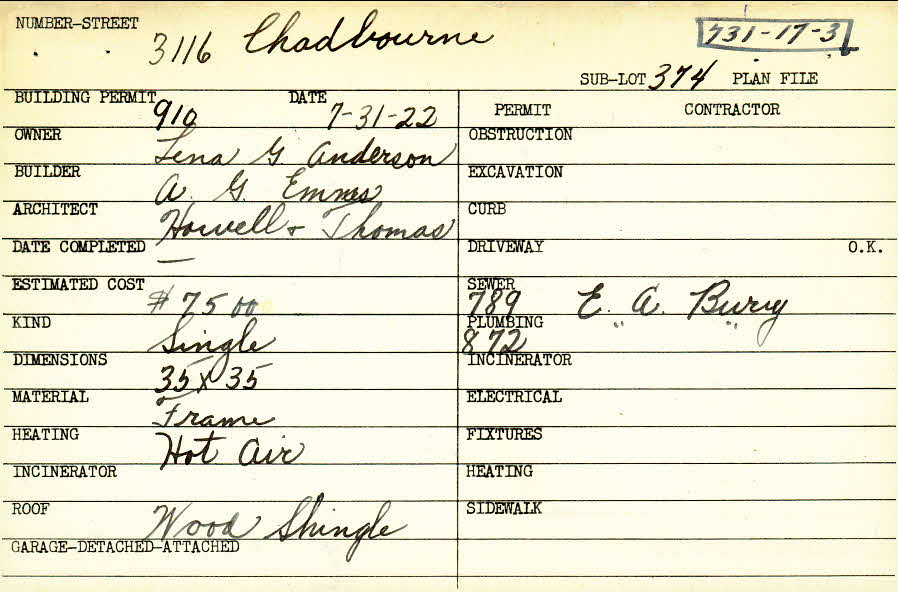 NUMBER-STREET 3116 Chadbourne 731-17-3
SUB-LOT 374 PLAN FILE
BUILDING PERMIT 910 DATE 7-31-22
OWNER Lena G. Anderson
BUILDER A. G. Emmes
ARCHITECT Howell & Thomas
DATE COMPLETED —
ESTIMATED COST $ 75 00
KIND Single
DIMENSIONS 35 x 35
MATERIAL Frame
HEATING Hot Air
INCINERATOR
ROOF Wood Shingle
GARAGE-DETACHED-ATTACHED
PERMIT CONTRACTOR
OBSTRUCTION
EXCAVATION
CURB
DRIVEWAY O.K.
SEWER 789 E. A. Bury
PLUMBING 872 " "
INCINERATOR
ELECTRICAL
FIXTURES
HEATING
SIDEWALK